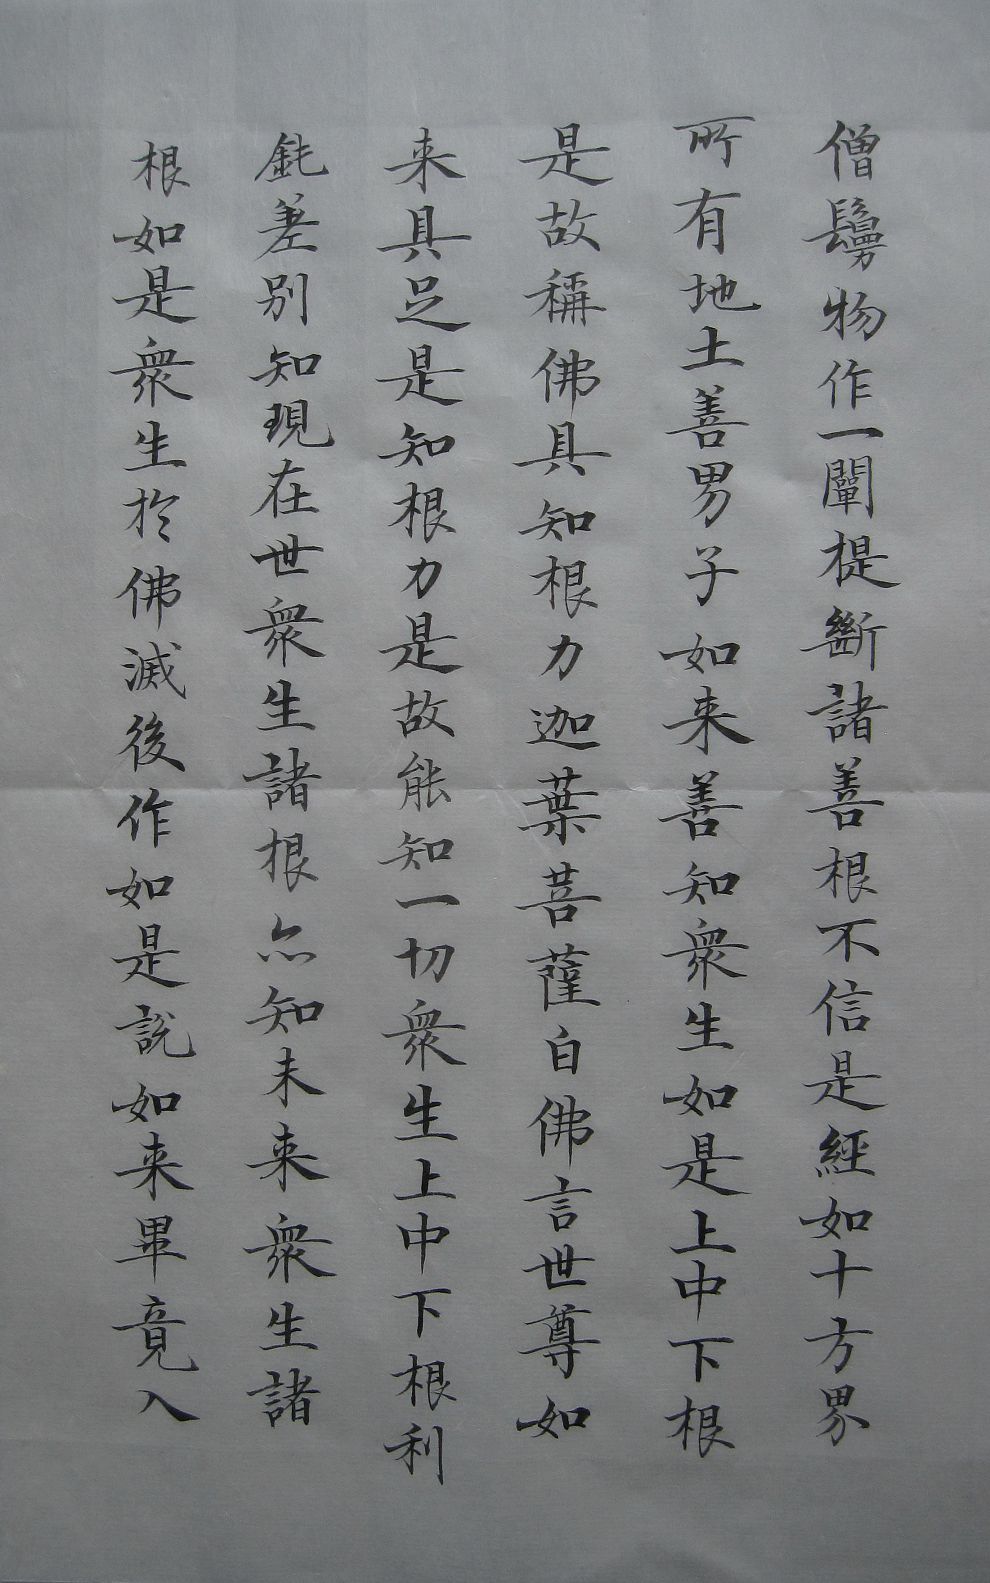 僧鬘物作一闡提斷諸善根不信是經如十方界
所有地土善男子如来善知衆生如是上中下根
是故稱佛具知根力迦葉菩薩白佛言世尊如
来具足是知根力是故能知一切衆生上中下根利
鈍差別知現在世衆生諸根亦知未来衆生諸
根如是衆生於佛滅後作如是說如来畢竟入